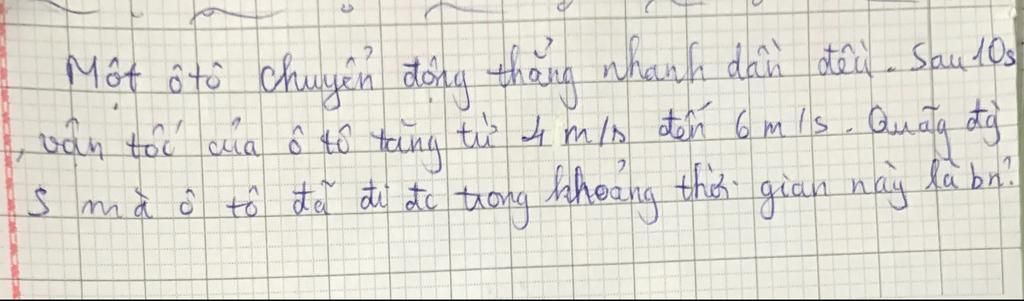 Một ôtô chuyển động thẳng nhanh dần đều. Sau 10s
, vận tốc của ô tô tăng từ 4 m/s đến 6 m/s. Quãg đg
S mà ô tô đã đi đc trong khoảng thời gian này là bn?